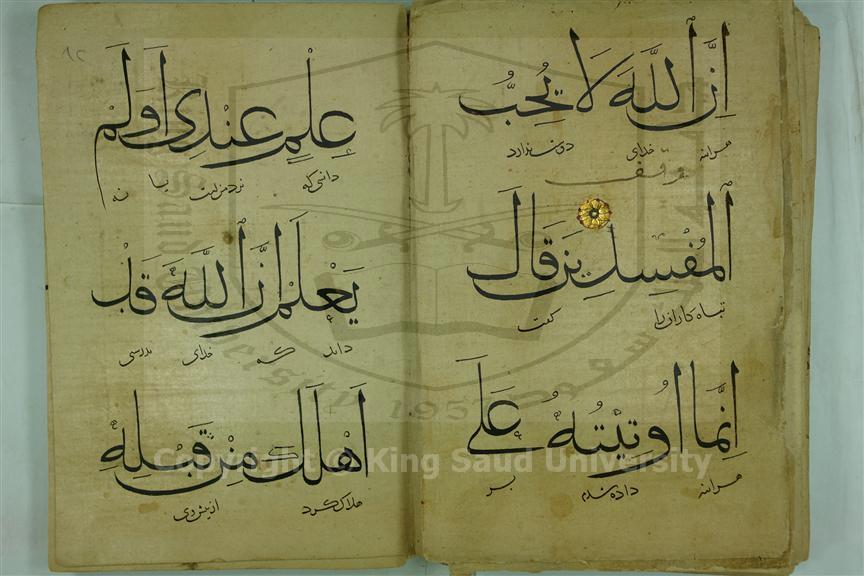 اِنَّ ٱللَّهَ لَا يُحِبُّ
هرآینه خدای دوست ندارد
ٱلْمُفْسِدِينَ قَالَ
تباه کاران را گفت
اِنَّمَا اُوتِيتُهُ عَلَى
هرآینه داده شدم بر
عِلْمٍ عِنْدِى اَوَلَمْ
دانشی که نزد من است یا نه
يَعْلَمْ اَنَّ ٱللَّهَ قَدْ
داند که خدای بدرستی
اَهْلَكَ مِنْ قَبْلِهِ
هلاک کرد از پیش وی
Copyright © King Saud University
1957